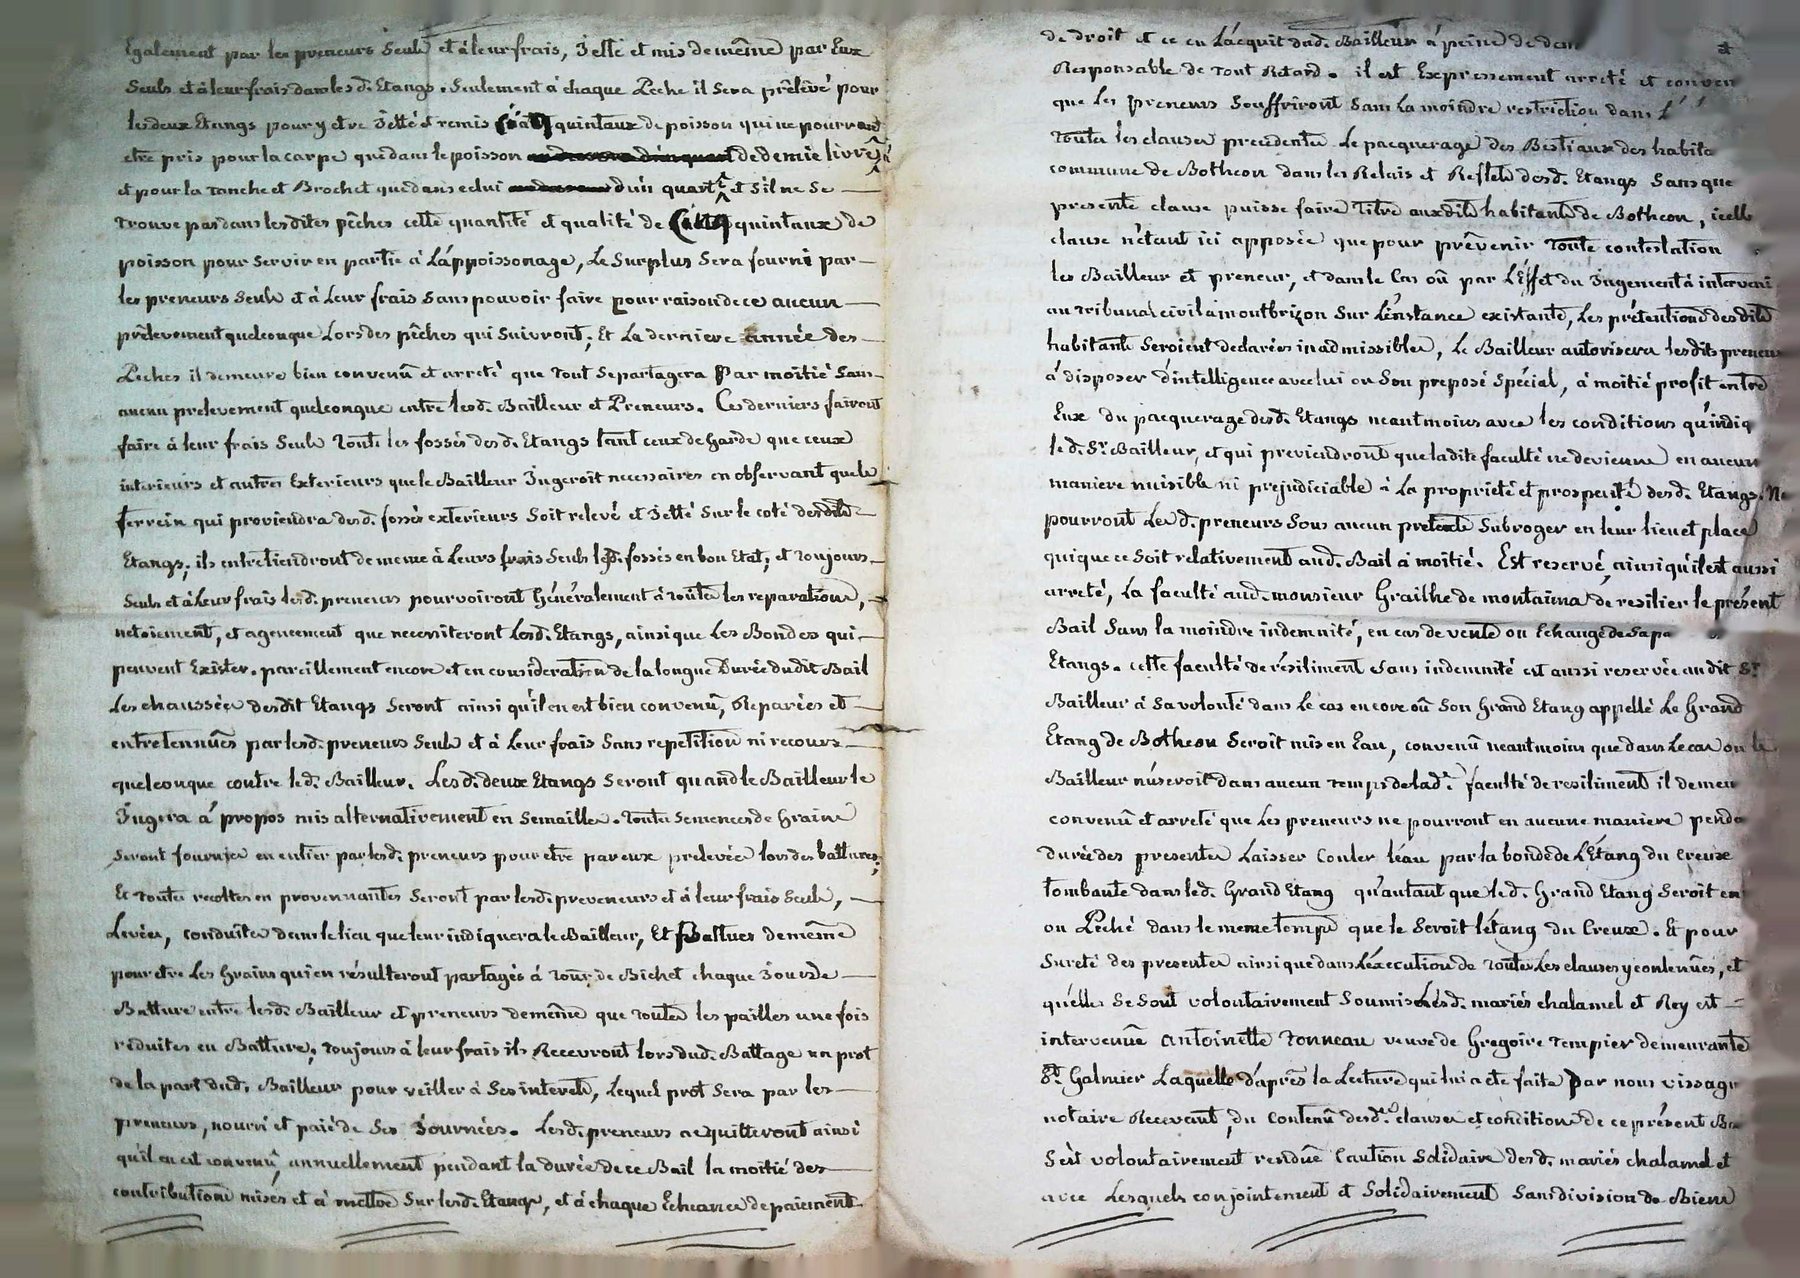 Egalement par les preneurs Seuls et à leur frais, Jetté et mis de même par Eux
Seuls et à leur frais dans les d. Etangs. Seulement à chaque Pêche il Sera prêlévé pour
les deux Etangs pour y etre Jetté et remis Cinq quintaux de poisson qui ne pourront
etre pris pour la carpe que dans le poisson de demie livre
et pour la Tanche et Brochet que dans celui d'un quart et S'il ne Se
Trouve pas dans lesdites pêches cette quantité et qualité de Cinq quintaux de
poisson pour Servir en partie à L'appoissonage, Le Surplus Sera fourni par
les preneurs Seuls et à Leur frais Sans pouvoir faire pour raison de ce aucun
prêlevement quelconque Lors des pêches qui Suivront; Et La derniere année des
Pêches il demeure bien convenû et arreté que Tout Se partagera Par moitié Sans
aucun prelevement quelconque entre les d. Bailleur et Preneurs. Ces derniers fairont
faire à leur frais Seuls Touts les fossés des d. Etangs tant ceux de Garde que ceux
interieurs et autres Exterieurs que le Bailleur Jugeroit necessaires en observant que le
terrein qui proviendra des d. fossés exterieurs Soit relevé et Jetté Sur le coté desdits
Etangs; ils entretiendront de meme à Leurs frais Seuls les d. fossés en bon Etat, et Toujours
Seuls et à Leur frais les d. preneurs pourvoiront Généralement à Toutes les reparations,
netoiement, et agencement que necessiteront Les d. Etangs, ainsi que Les Bondes qui
peuvent Exister. pareillement encore et en consideration de la longue Durée dudit Bail
Les chaussées desdit Etangs Seront ainsi qu'il en est bien convenû, Reparées et
entretennües par les d. preneurs Seuls et à Leur frais Sans repetition ni recours
quelconque contre le d. Bailleur. Les d. deux Etangs Seront quand le Bailleur le
Jugera à propos mis alternativement en Semailles. Toutes Semences de Grains
Seront fournies en entier par les d. preneurs pour etre par eux prelevées lors des battures;
Et Toutes recoltes en provennantes Seront par les d. preveneurs et à leur frais Seuls,
Levées, conduites dans le lieu que leur indiquera le Bailleur, Et Battues de même
pour etre Les Grains qui en résulteront partagés à Tour de Bichet chaque Jour de
Batture entre les d. Bailleur et preneurs de même que Toutes les pailles une fois
réduites en Batture; Toujours à leur frais ils Recevront lors dud. Battage un prot
de la part dud. Bailleur pour veiller à Ses interets, Lequel prot Sera par les
preneurs, nourri et paié de Ses Journées. Les d. preneurs acquitteront ainsi
qu'il en est convenû, annuellement pendant la durée de ce Bail la moitié des
contributions mises et à mettre Sur les d. Etangs, et à chaque Echeance de paiement
de droit et ce en L'acquit dud. Bailleur à peine de
Responsable de Tout Retard. il est Expressement arreté et conven
que Les preneurs Souffriront Sans La moindre restriction dans
Toutes les clauses precedentes Le pacquerage des Bestiaux des habita
commune de Botheon dans les Relais et Reflets des d. Etangs Sans que
presente clause puisse faire Titre auxdits habitants de Botheon, icelle
clause n'étant ici apposée que pour prêvenir Toute contestation
les Bailleur et preneur, et dans le Cas où par L'Effet du Jugement à interveni
au Tribunal civil à montbrizon Sur L'instance existante, Les prétentions desdits
habitants Seroient declarées inadmissibles, Le Bailleur autorisera lesdits preneurs
à disposer d'intelligence avec lui ou Son preposé Spécial, à moitié profit entre
Eux du pacquerage des d. Etangs neantmoins avec les conditions qu'indiq
le d. Sr. Bailleur, et qui previendront que la dite faculté ne devienne en aucun
maniere nuisible ni prejudiciable à La propriété et prosperité des d. Etangs. Ne
pourront Les d. preneurs Sous aucun pretexte Subroger en leur lieu et place
qui que ce Soit relativement aud. Bail à moitié. Est reservé, ainsi qu'il est aussi
arreté, La faculté aud. monsieur Grailhe de montaima de resilier le présent
Bail Sans la moindre indemnité, en cas de vente ou Echange de
Etangs. cette faculté de résiliment Sans indemnité est aussi reservée au dit Sr
Bailleur à Sa volonté dans Le cas encore où Son Grand Etang appellé Le Grand
Etang de Botheon Seroit mis en Eau, convenû neantmoins que dans Le cas ou le
Bailleur n'useroit dans aucun Temps de lad. faculté de resiliment il demeu
convenû et arreté que Les preneurs ne pourront en aucune maniere penda
durée des presentes Laisser Couler l'eau par la bonde de L'Etang du Creux
tombante dans le d. Grand Etang qu'autant que le d. Grand Etang Seroit en
ou Pêché dans le meme temps que le Seroit l'étang du Creux. Et pour
Sureté des presentes ainsi que dans L'éxecution de Toutes Les clauses y contenües, et
qu'elles Se Sont volontairement Soumis Les d. mariés chalamel et Rey est
intervenüe antoinette Tonneau veuve de Gregoire Tempier demeurante
St. Galmier Laquelle d'après la Lecture qui lui a eté faite Par nous vissagu
notaire Recevant, du Contenû des d. clauses et conditions de ce présent Ba
S'est volontairement rendüe Caution Solidaire des d. mariés chalamel et
avec Lesquels conjointement et Solidairement Sans division de Biens